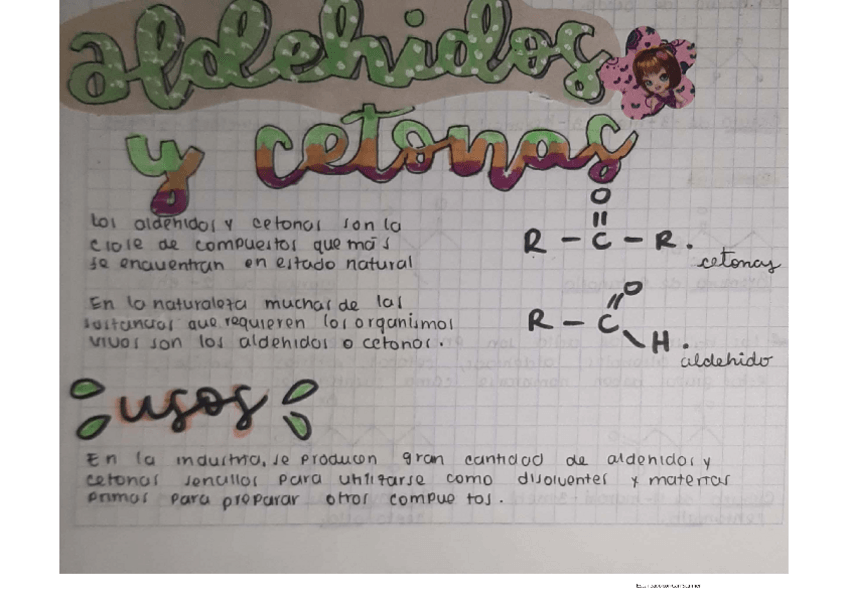 aldehidos
y cetonas
Los aldehidos y cetonas son la
clase de compuestos que más
se encuentran en estado natural
O
||
R – C – R.
cetonas
En la naturaleza muchas de las
sustancias que requieren los organismos
vivos son los aldehidos o cetonas.
O
//
R – C
\
H.
aldehido
usos
En la industria, se producen gran cantidad de aldehidos y
cetonas sencillos para utilizarse como disolventes y materias
primas para preparar otros compue tos.